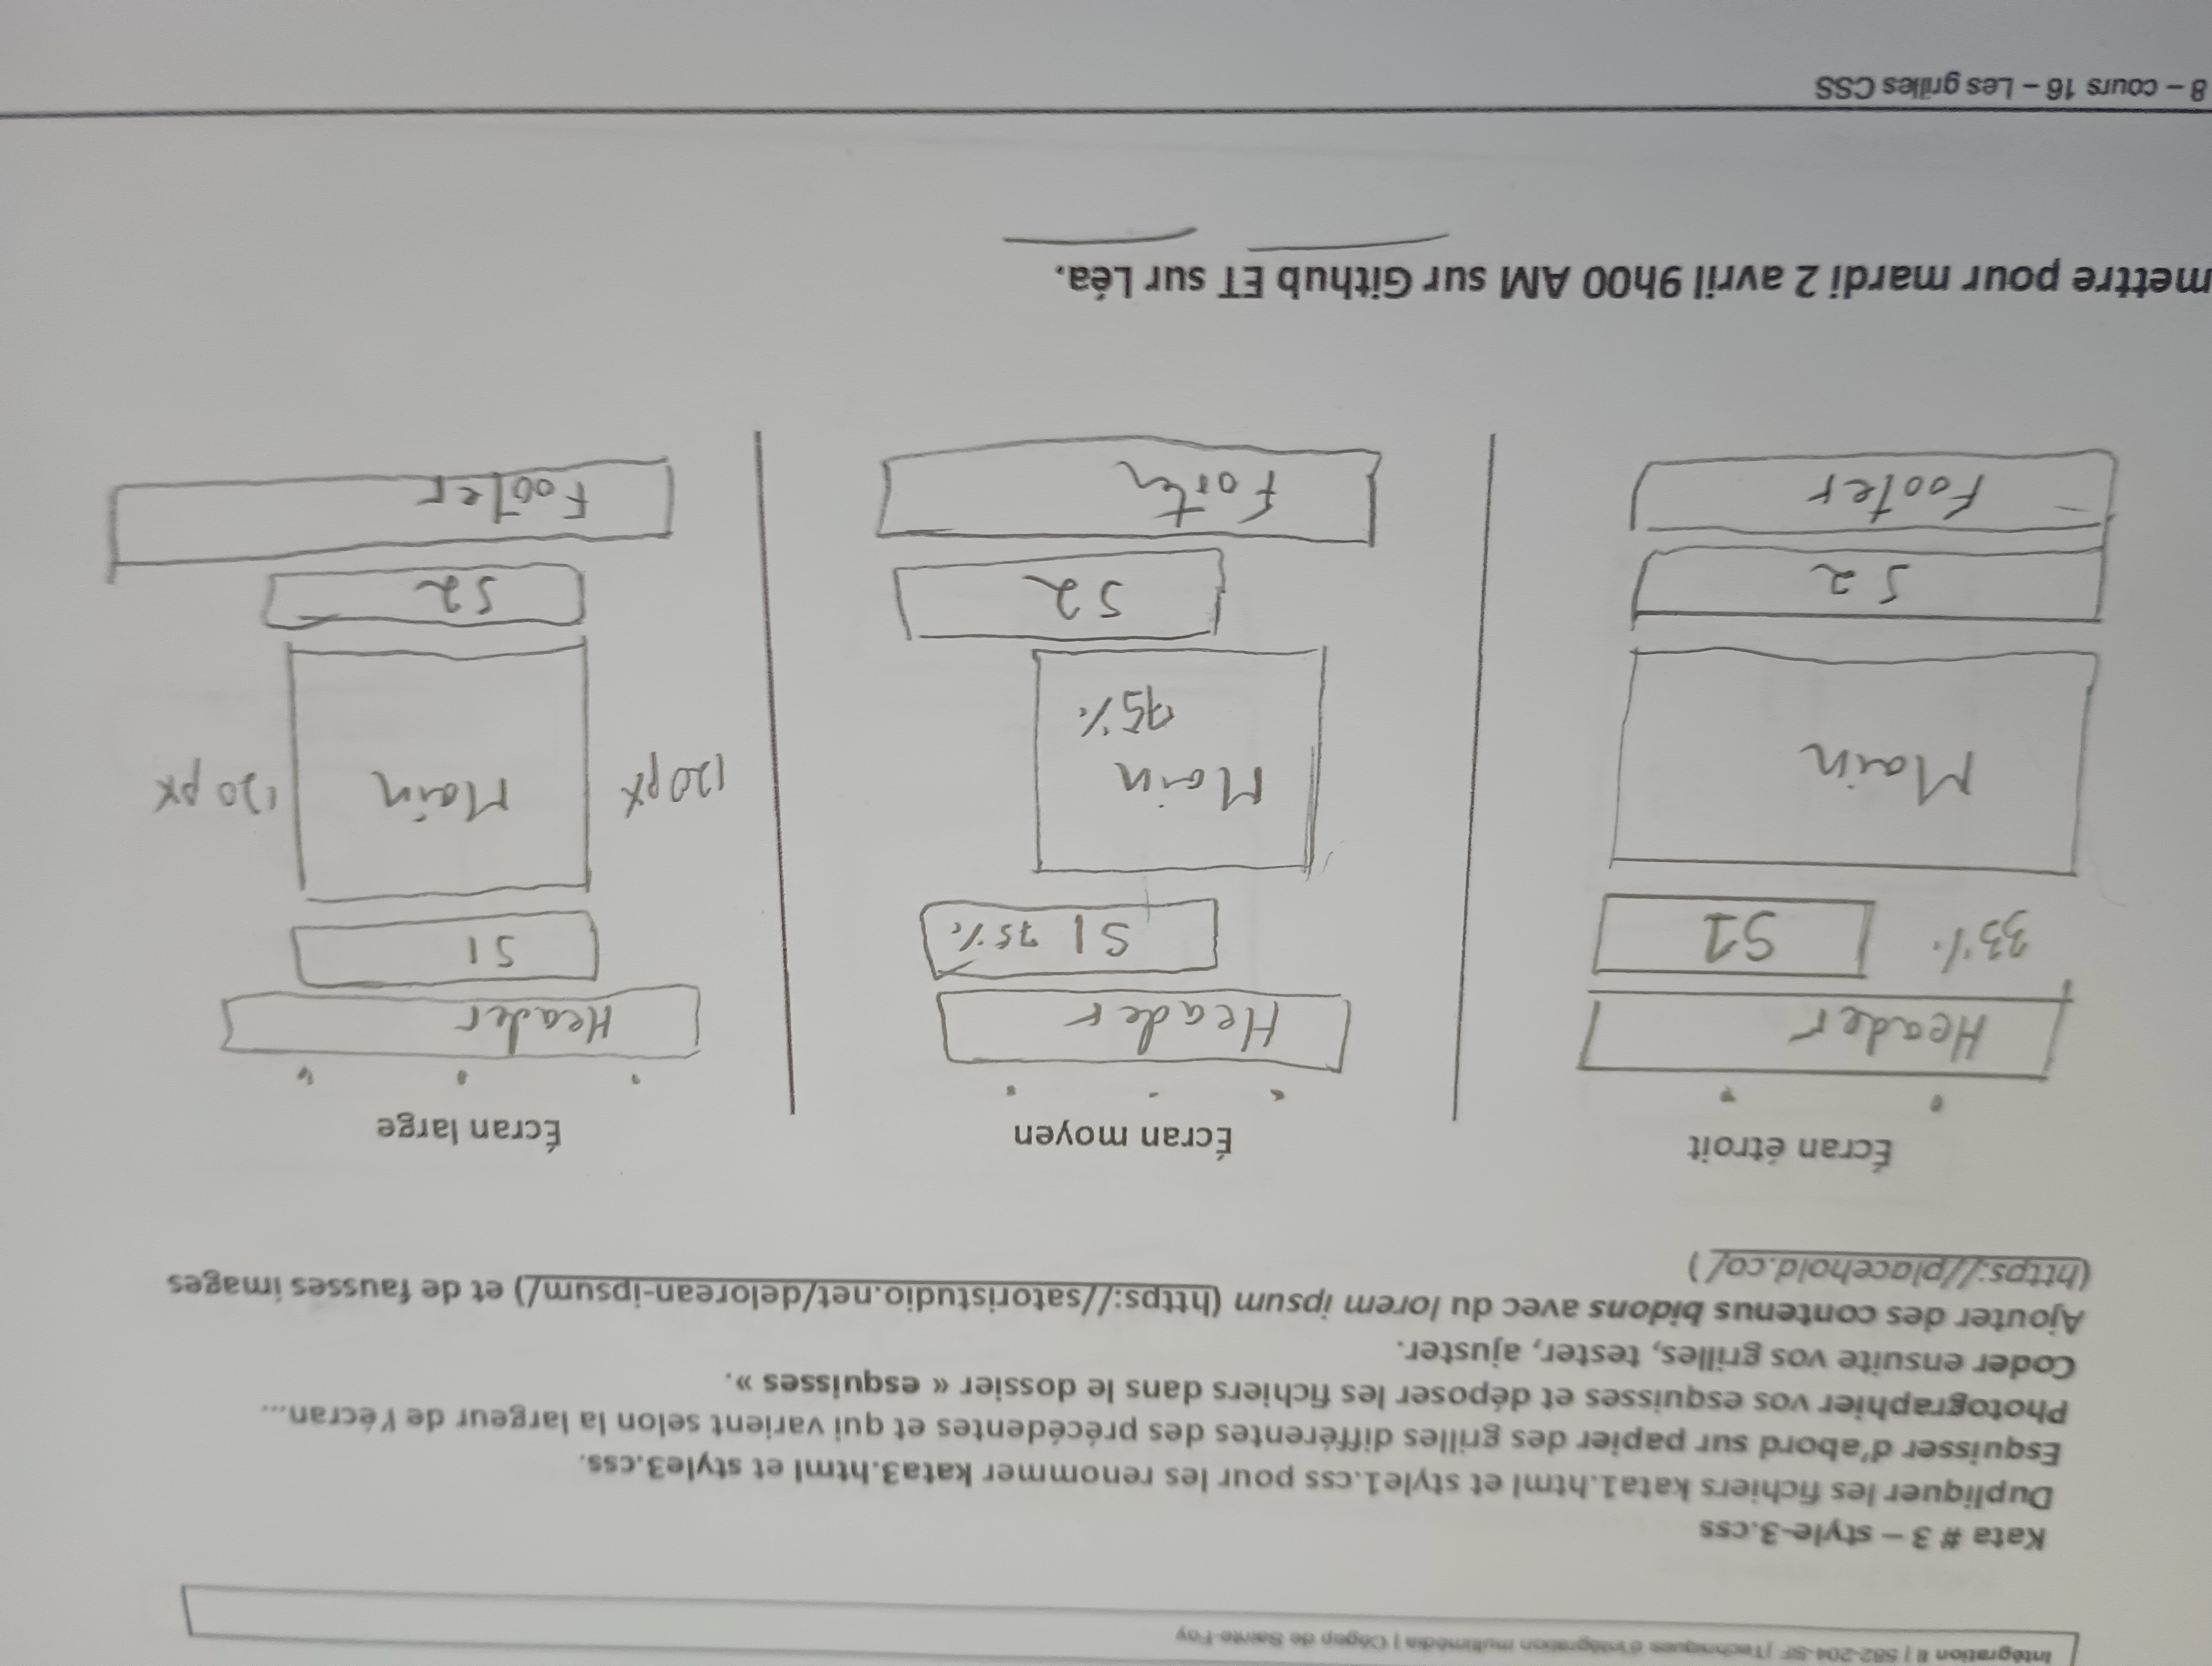 Intégration II | 582-204-SF |Techniques d'intégration multimédia | Cégep de Sainte-Foy
Kata # 3 – style-3.css
Dupliquer les fichiers kata1.html et style1.css pour les renommer kata3.html et style3.css.
Esquisser d'abord sur papier des grilles différentes des précédentes et qui varient selon la largeur de l'écran...
Photographier vos esquisses et déposer les fichiers dans le dossier « esquisses ».
Coder ensuite vos grilles, tester, ajuster.
Ajouter des contenus bidons avec du lorem ipsum (https://satoristudio.net/delorean-ipsum/) et de fausses images
(https://placehold.co/ )
Écran étroit
Header
33%
S1
Main
S2
Footer
Écran moyen
Header
S1 75%
Main
75%
S2
Footer
Écran large
Header
S1
120px
Main
120 px
S2
Footer
mettre pour mardi 2 avril 9h00 AM sur Github ET sur Léa.
8 – cours 16 – Les grilles CSS